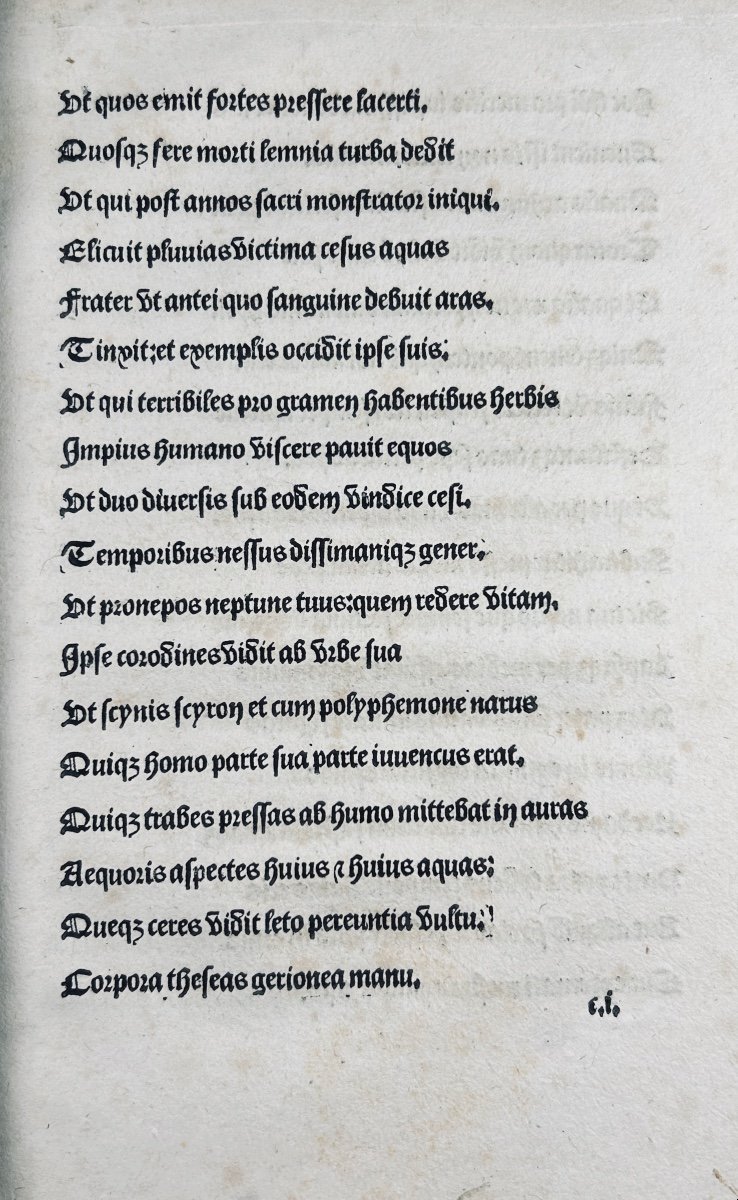 Vt quos emit fortes pressere lacerti.
Quosqꝫ fere morti lemnia turba dedit
Vt qui post annos sacri monstrator iniqui.
Elicuit pluuias victima cesus aquas
Frater vt antei quo sanguine debuit aras.
Tinxit:et exemplis occidit ipse suis:
Vt qui terribiles pro gramen habentibus herbis
Impius humano viscere pauit equos
Vt duo diuersis sub eodem vindice cesi.
Temporibus nessus dissimaniqꝫ gener.
Vt pronepos neptune tuus:quem redere vitam.
Ipse corodines vidit ab vrbe sua
Vt scynis scyron et cum polyphemone natus
Quiqꝫ homo parte sua parte iuuencus erat.
Quiqꝫ trabes pressas ab humo mittebat in auras
Aequoris aspectes huius ⁊ huius aquas:
Queqꝫ ceres vidit leto pereuntia vultu:
Corpora theseas gerionea manu.
c.i.